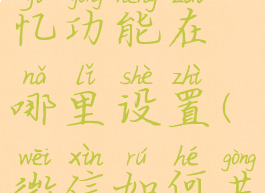 忆功能在
nǎ lǐ shè zhì
哪里设置(
wēi xìn rú hé gòng
微信如何共